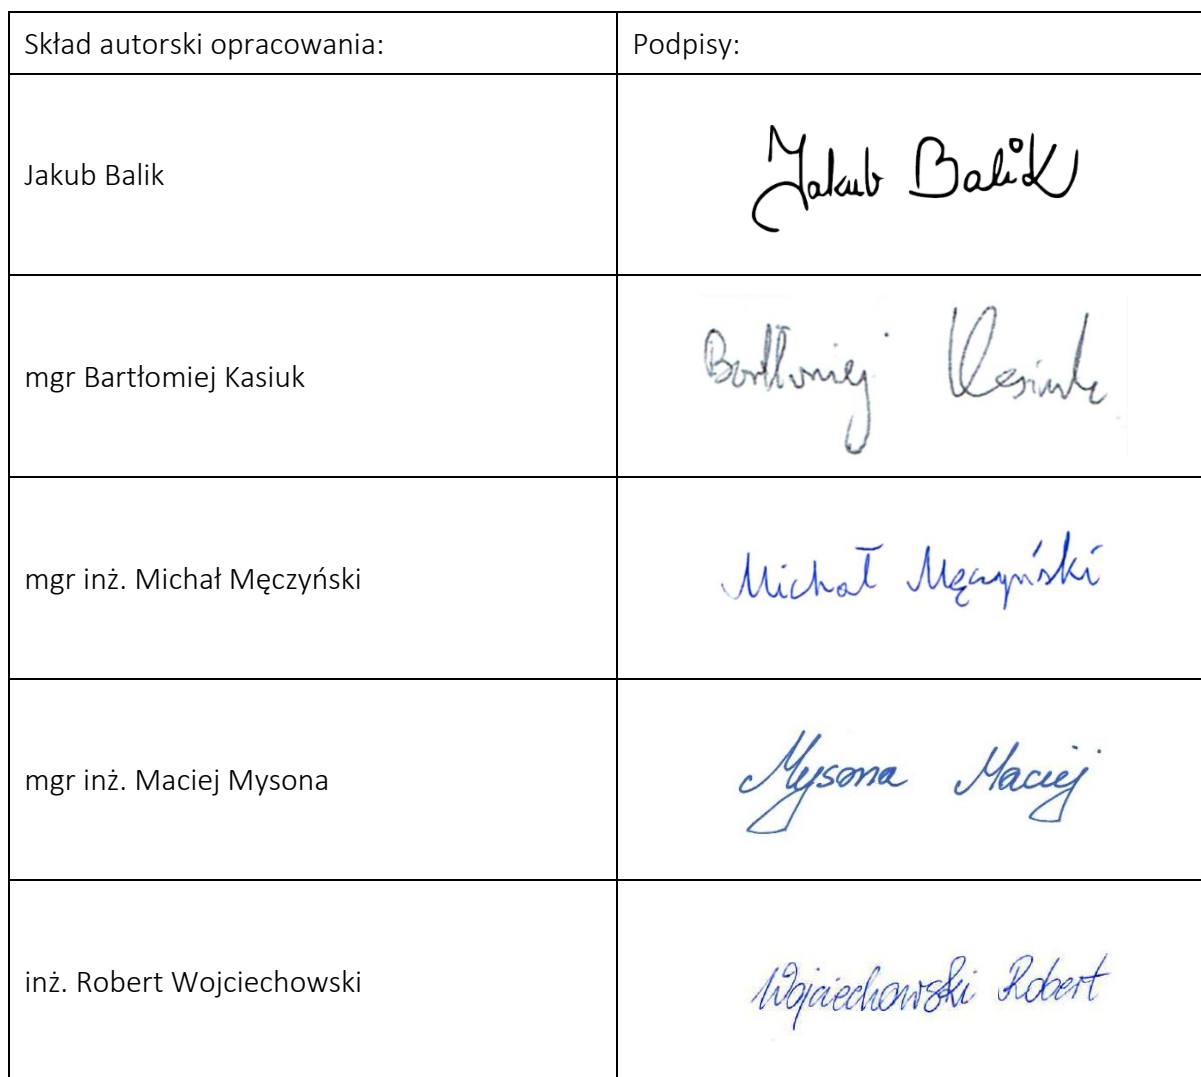 Skład autorski opracowania:
Podpisy:
Jakub Balik
Jakub Balik
mgr Bartłomiej Kasiuk
Bartłomiej Kasiuk
mgr inż. Michał Męczyński
Michał Męczyński
mgr inż. Maciej Mysona
Mysona Maciej
inż. Robert Wojciechowski
Wojciechowski Robert